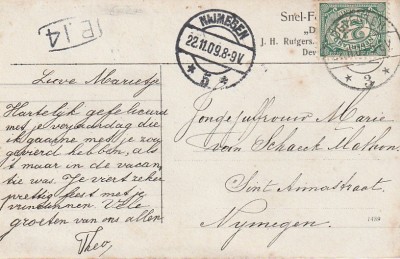 R 14
NIJMEGEN
22.11.09.8-9V.
5
Snel-F
"D
J. H. Rutgers.
Dev
3
Lieve Marietje
Hartelijk gefeliciteerd
met je verjaardag die
ik gaarne met je zou
gevierd hebben, als 't
maar in de vacan
tie was. Je viert zeker
prettig feest met je
vriendinnen. Vele
groeten van ons allen.
Theo,
Jongejuffrouw Marie
van Schaeck Mathon.
Sint Annastraat.
Nijmegen.